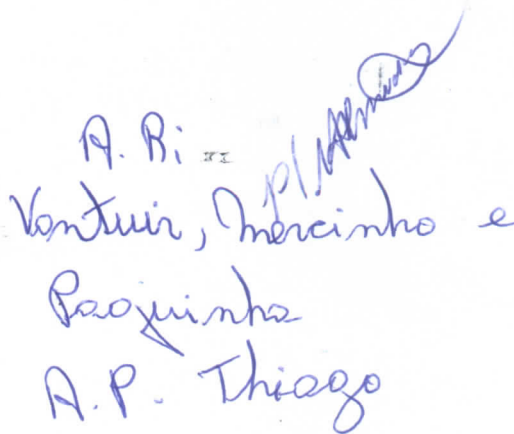 A. Ri
Vantuir, Marcinho e
Paquinha
A.P. Thiago